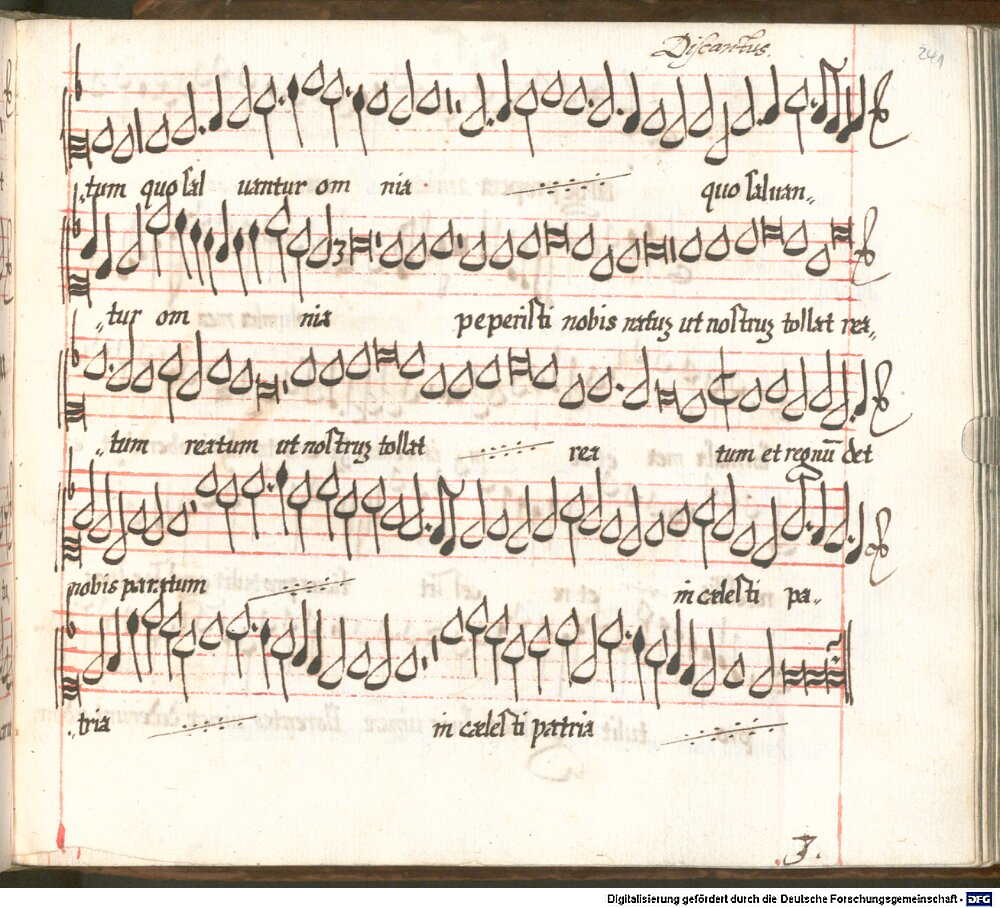 Discantus.
241
tum quo sal uantur om nia quo saluan„
„tur om nia peperisti nobis natuȝ ut nostruȝ tollat rea„
„tum reatum ut nostruȝ tollat rea tum et regnū det
nobis paratum in cælesti pa„
„tria in cælesti patria
3.
Digitalisierung gefördert durch die Deutsche Forschungsgemeinschaft - DFG